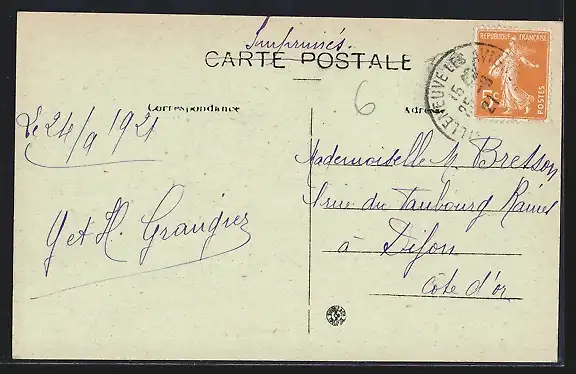 Imprimés.
CARTE POSTALE
REPUBLIQUE FRANÇAISE
5c
POSTES
VILLENEUVE LES AVI
Correspondance
Adresse
6
Le 24/9 1921
Mademoiselle M. Bresson
rue du Faubourg Raines
à Dijon
Côte d'or
G et H.